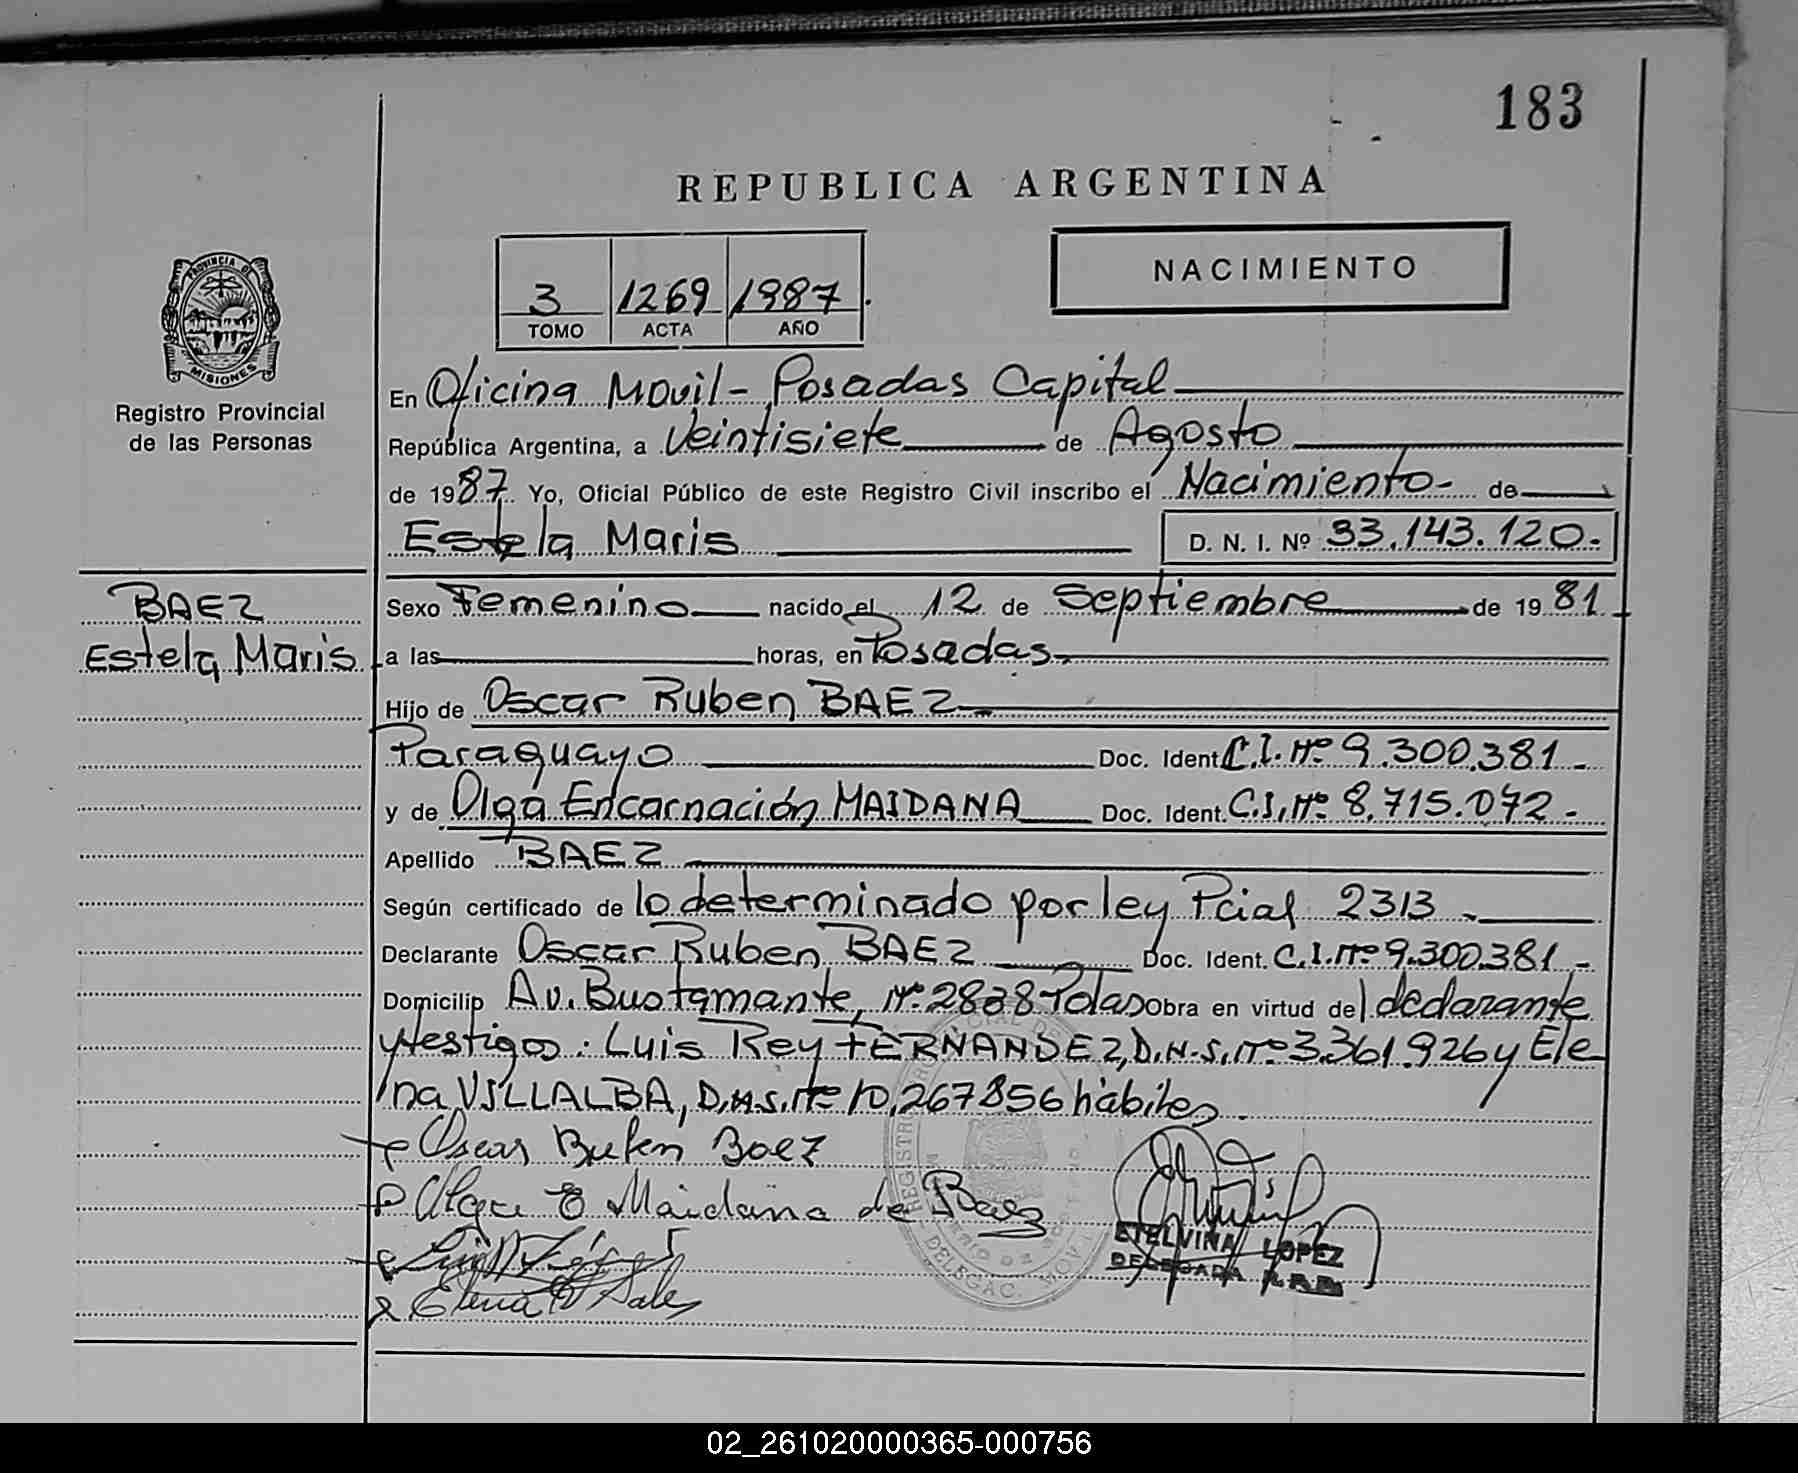 183
REPUBLICA ARGENTINA
3 1269 1987
TOMO ACTA AÑO
NACIMIENTO
PROVINCIA DE
MISIONES
Registro Provincial
de las Personas
BAEZ
Estela Maris
En Oficina Movil - Posadas Capital
República Argentina, a Veintisiete de Agosto
de 1987. Yo, Oficial Público de este Registro Civil inscribo el Nacimiento - de
Estela Maris D. N. I. Nº 33.143.120.-
Sexo Femenino nacido el 12 de Septiembre de 1981
a las horas, en Posadas.-
Hijo de Oscar Ruben BAEZ
Paraguayo Doc. Ident. C.I. Nº 9.300.381 -
y de Olga Encarnación MAIDANA Doc. Ident. C.I. Nº 8.715.072 -
Apellido BAEZ
Según certificado de lo determinado por ley Pcial 2313 -
Declarante Oscar Ruben BAEZ Doc. Ident. C.I. Nº 9.300.381 -
Domicilio Av. Bustamante, Nº 2838 - Pdas Obra en virtud del declarante
y testigos: Luis Rey FERNANDEZ, D.N.I. Nº 3.361.926 y Ele
na VILLALBA, D.N.I. Nº 10.267856 hábiles.
Oscar Ruben Baez
Olga E Maidana de Baez
Elena
ETELVINA LOPEZ
DELEGADA
02_261020000365-000756